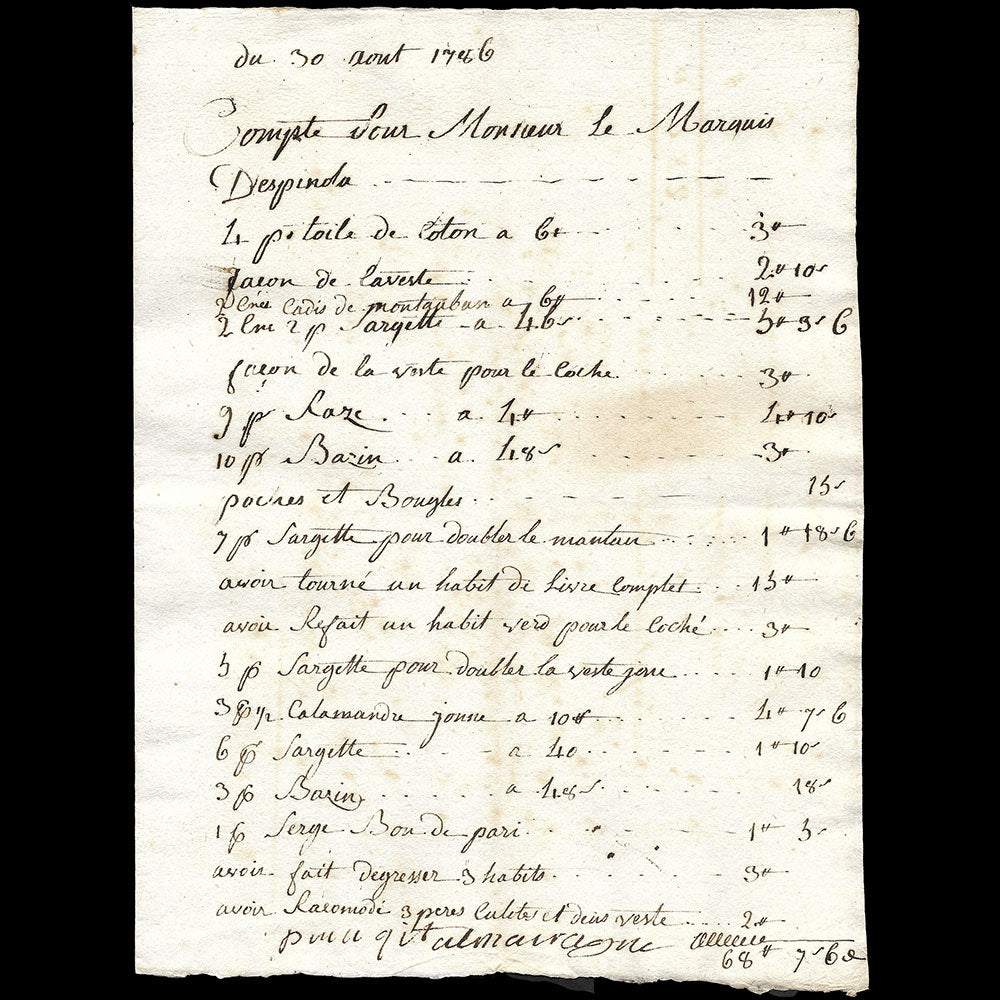 du 30 aout 1786
Compte Pour Monsieur le Marquis
Despinola
4 p. toile de Coton a 6# 3#
façon de la veste 2# 10s
2 Cnes Cadis de montauban a 6# 12#
2 Cne 2 p Sargette a 46s 5# 3s 6
façon de la veste pour le Coche 3#
9 p Raze a 4# 4# 10s
10 p Bazin a 48s 3#
poches et Bougles 15s
7 p Sargette pour doubler le mantau 1# 18s 6
avoir tourné un habit de Livre Complet 15#
avoir Refait un habit verd pour le Coché 3#
5 p Sargette pour doubler la veste jone 1# 10
3 p 1/2 Calamandre jonne a 10# 4# 7s 6
6 p Sargette a 40 1# 10s
3 p Bazin a 48s 18s
1 p Serge Bon de pari 1# 5s
avoir fait degresser 3 habits 3#
avoir Racomodé 3 peres Culotes et deus veste 2#
68# 7s 6d